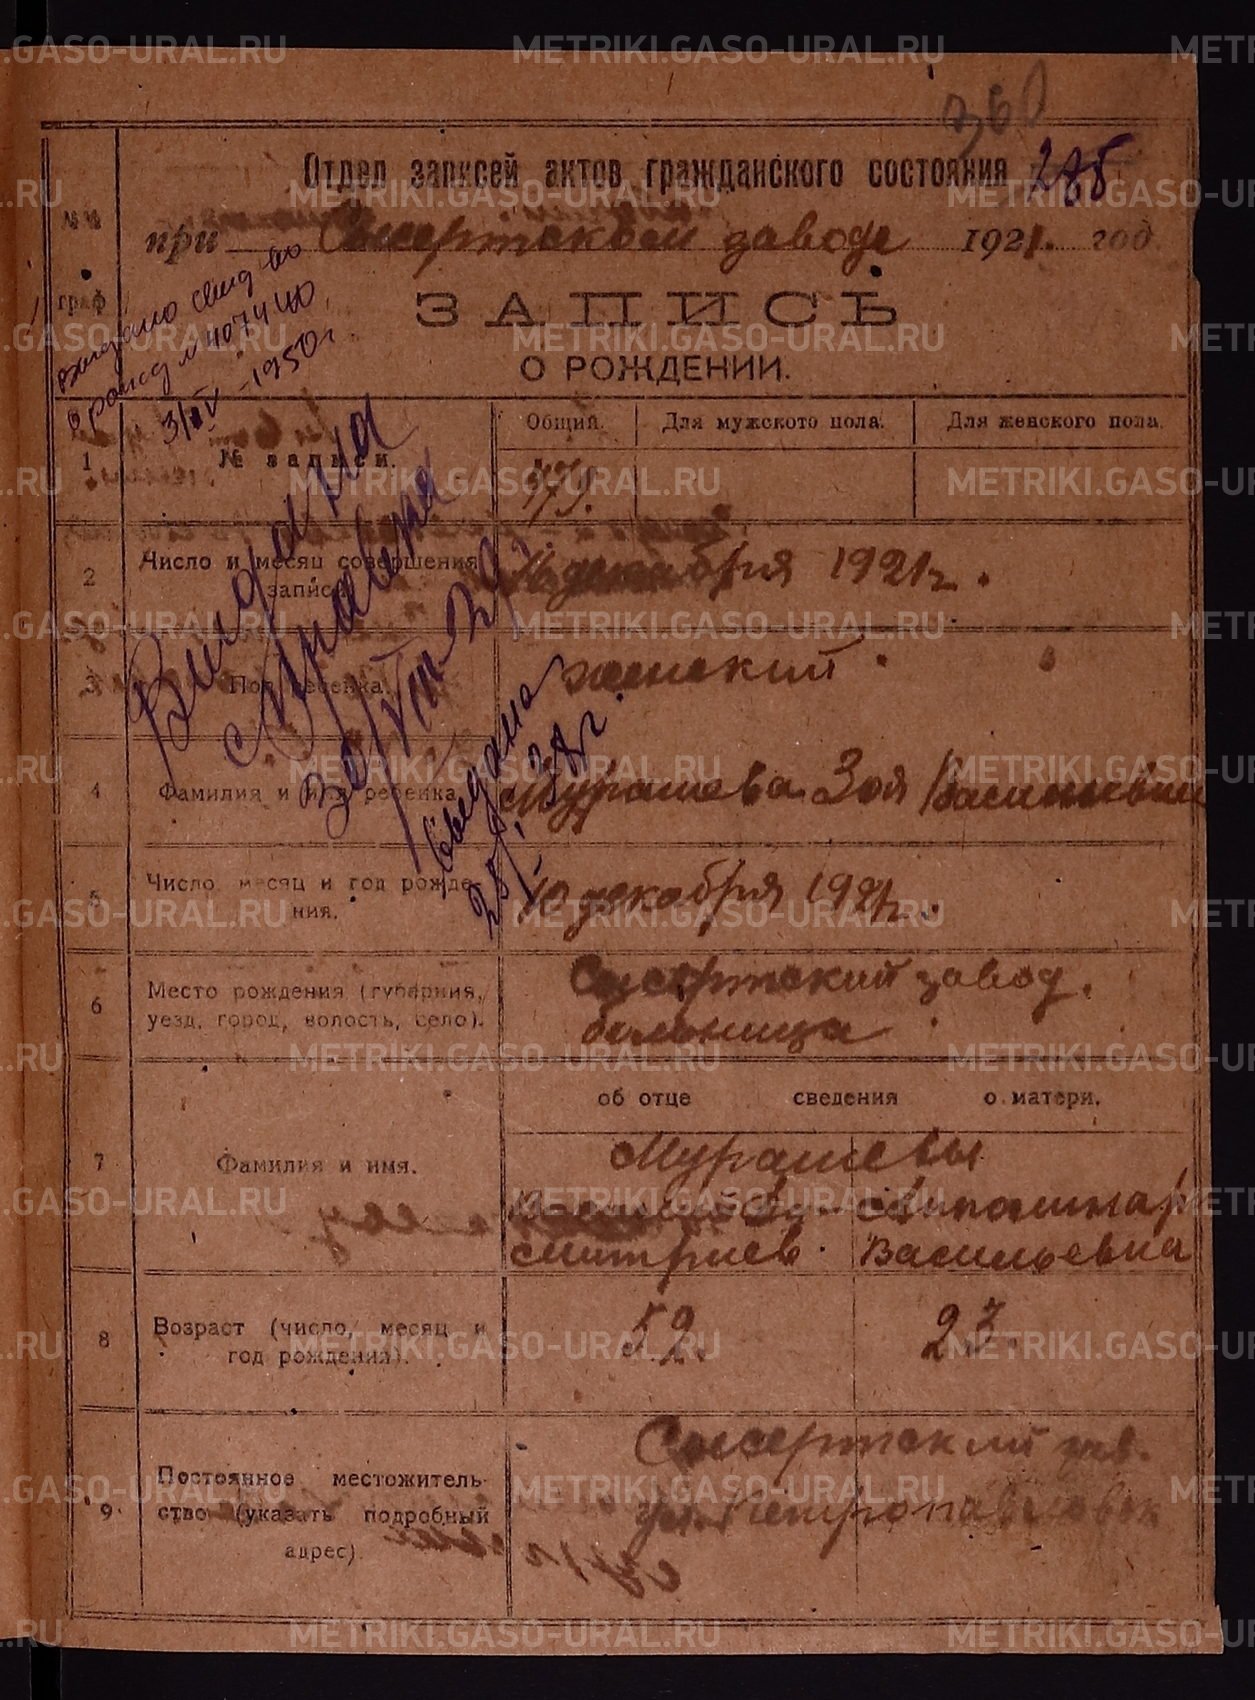 METRIKI.GASO-URAL.RU
360
Отдел записей актов гражданского состояния 285
при Сысертском заводе 1921. год.
№№ граф
ЗАПИСЬ
О РОЖДЕНИИ.
выдано свид во
о рожд № 407440
3/IV-1950г
Выдана
справка
Общий. Для мужского пола. Для женского пола.
1 № записи.
2 Число и месяц совершения записи. декабря 1921г.
3 Пол ребенка. женский
4 Фамилия и имя ребенка. Мурашева Зоя Васильевна
5 Число, месяц и год рождения. 10 декабря 1921г.
6 Место рождения (губерния, уезд, город, волость, село). Сысертский завод.
больница
об отце сведения о матери.
7 Фамилия и имя. Мурашевы
Дмитриев. Васильевна
8 Возраст (число, месяц и год рождения). 52. 23.
9 Постоянное местожительство (указать подробный адрес). Сысертский зав.
ул. Петропавловск